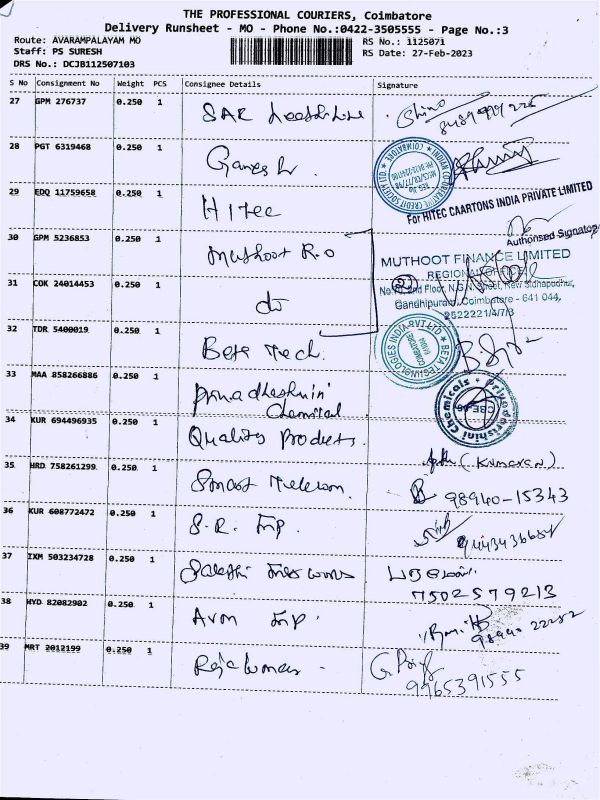 THE PROFESSIONAL COURIERS, Coimbatore
Delivery Runsheet - MO - Phone No.:0422-3505555 - Page No.:3
Route: AVARAMPALAYAM MO RS No.: 1125071
Staff: PS SURESH RS Date: 27-Feb-2023
DRS No.: DCJB112507103
S No Consignment No Weight PCS Consignee Details Signature
27 GPM 276737 0.250 1 SAR
28 PGT 6319468 0.250 1 Ganesh
29 EDQ 11759658 0.250 1 Hitec
For HITEC CAARTONS INDIA PRIVATE LIMITED
Authorised Signatory
30 GPM 5236853 0.250 1 Muthoot R.O
MUTHOOT FINANCE LIMITED
REGIONAL OFFICE
2nd Floor, N.S.N. Street, New Sidhapudur,
Gandhipuram, Coimbatore - 641 044,
31 COK 24014453 0.250 1 do
32 TDR 5400019 0.250 1 Beta Tech.
BETA TECHNOLOGIES INDIA PVT LTD
COIMBATORE
33 MAA 858266886 0.250 1 Priyadharshini
Chemical
Priyadarshini Chemicals
34 KUR 694496935 0.250 1 Quality Products. (Kumaran)
35 HRD 758261299 0.250 1 Smart Telecom. 98940-15343
36 KUR 608772472 0.250 1 S.R. Imp.
37 IXM 503234728 0.250 1 Sakthi
7502579213
38 HYD 82082902 0.250 1 Avm Imp.
98940 22252
39 MRT 2012199 0.250 1 Rajakumar
9965391555